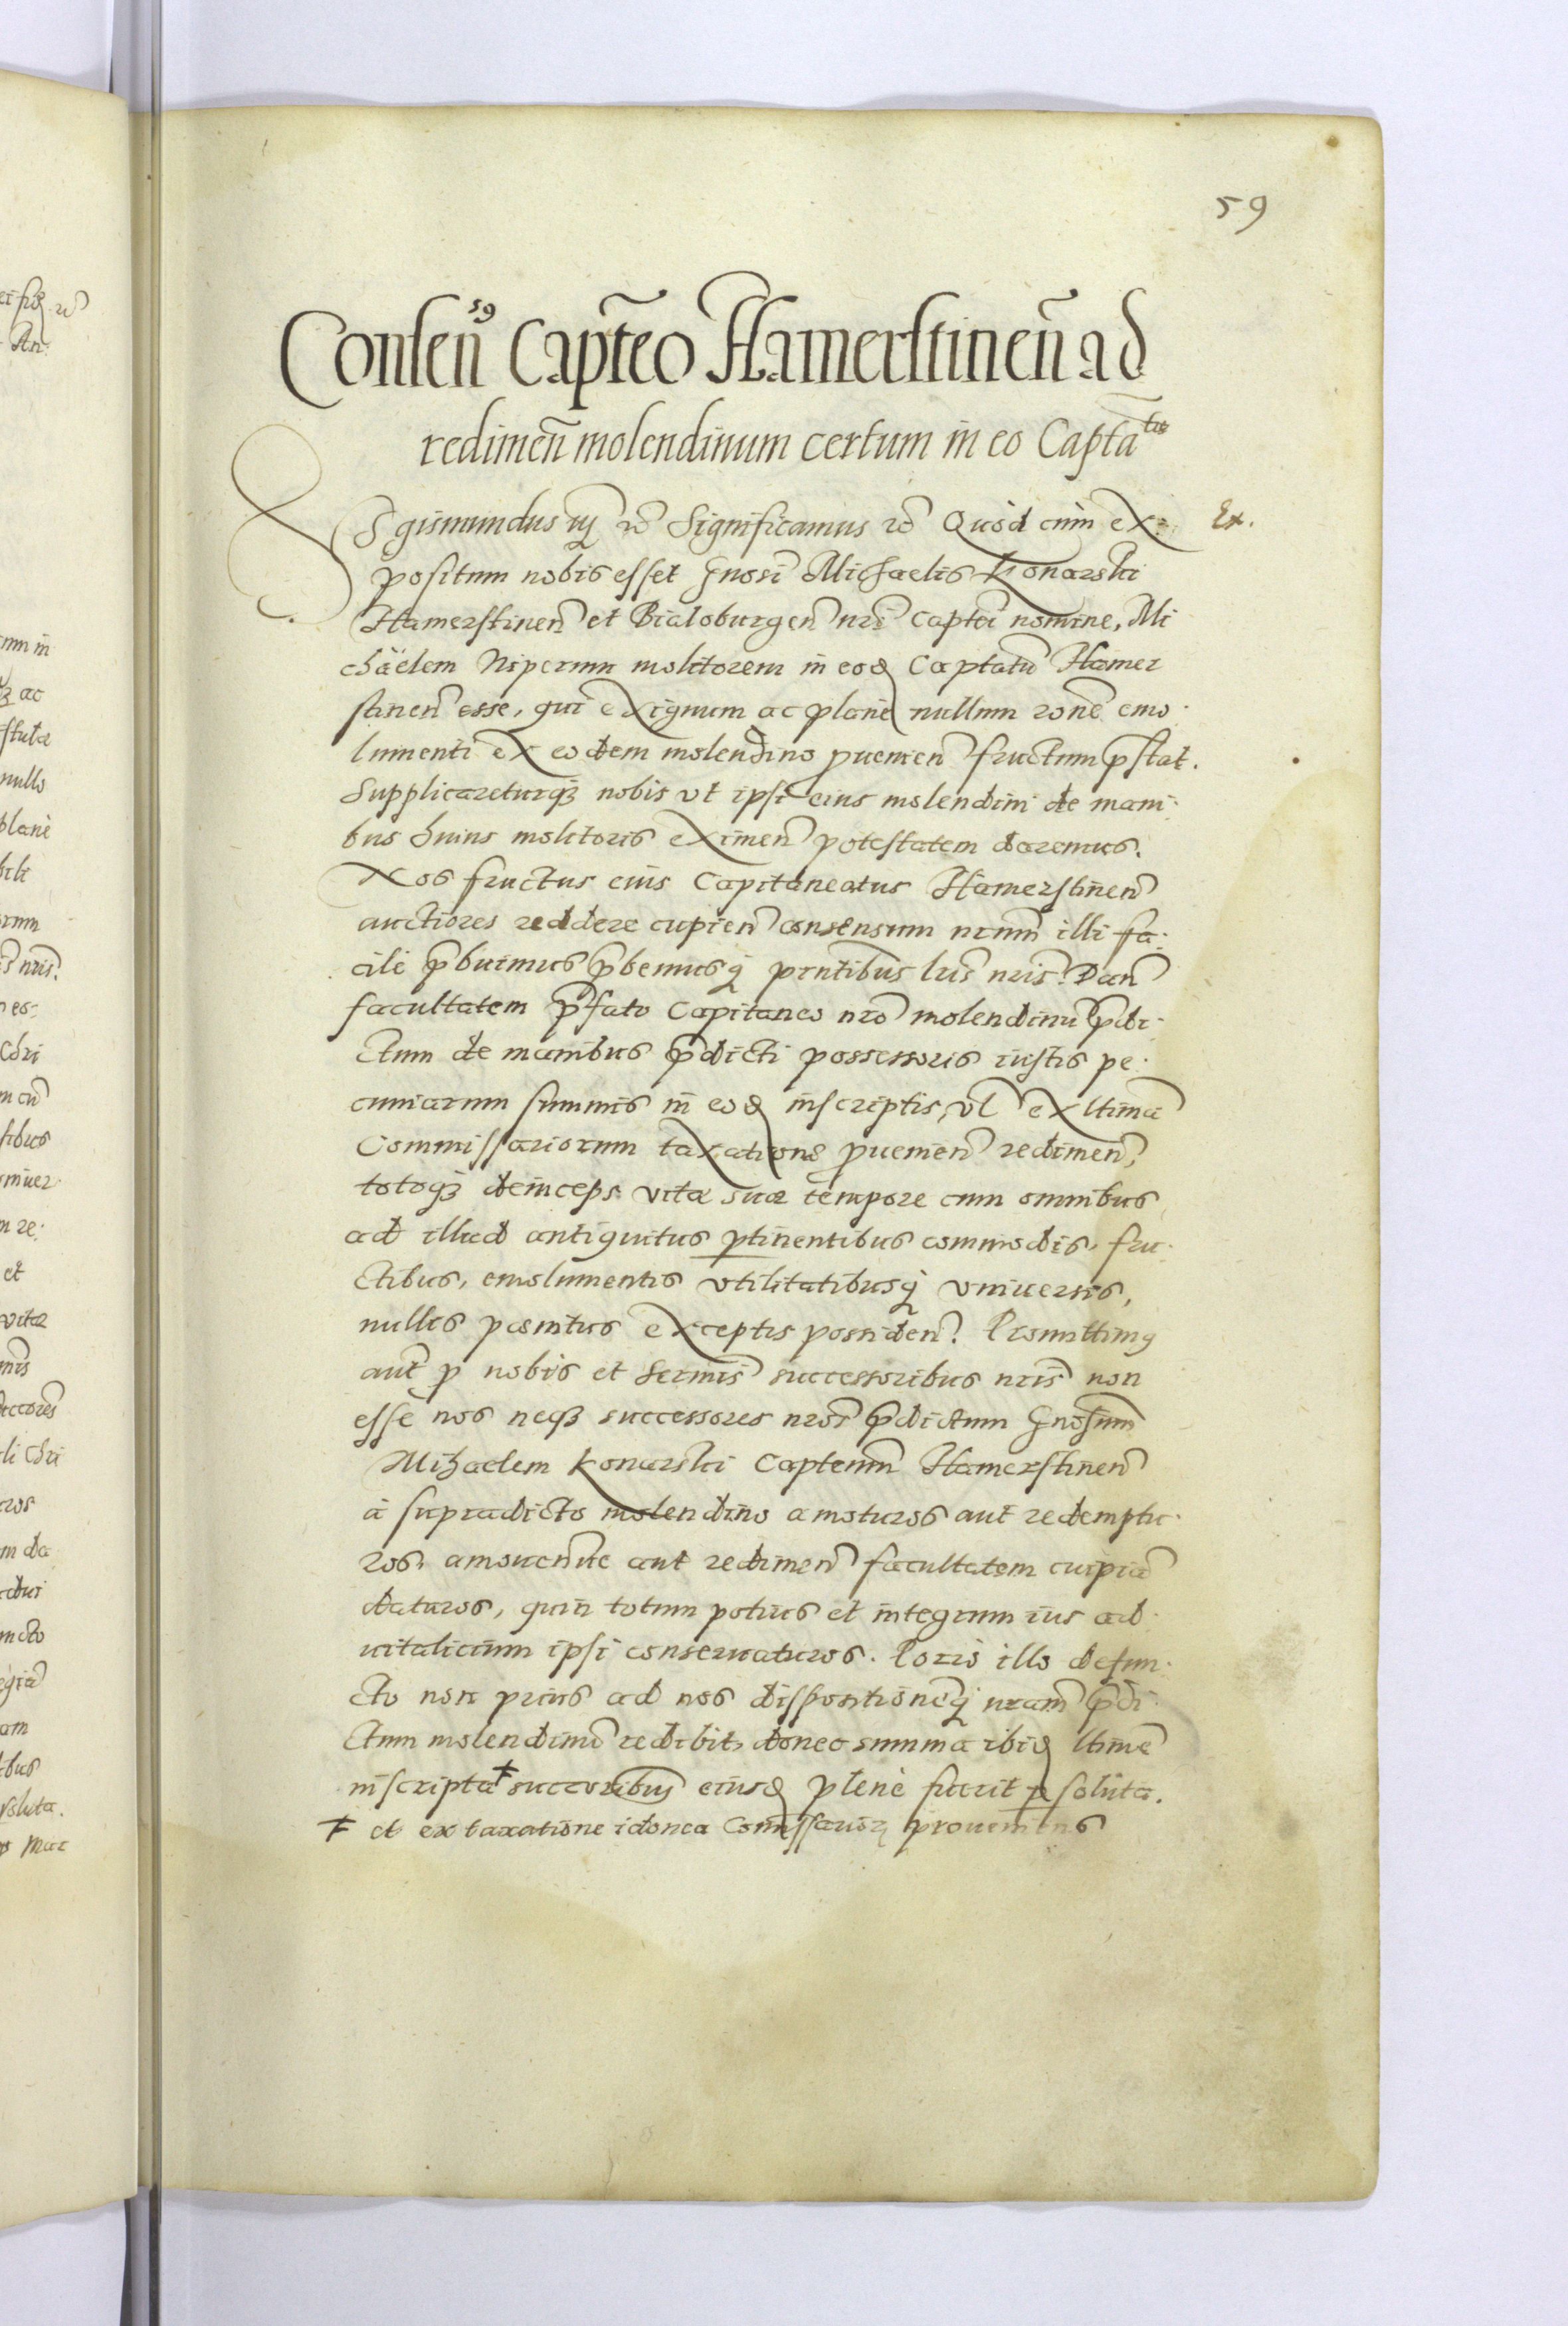 59
Consen̄sꝰ Capt̃eo Hamerstinen̄ ad
redimen̄ molendinum certum in eo Capta͠tu
Sigismundus iij ꝛc̃ Significamus ꝛc̃ Quòd cum ex= Ex.
positum nobis esset Gnosi Michaelis Konarski
Hamerstinen̄ et Bialoburgen̄ nr̃i Captei nomine, Mi
chäelem Nipernn molitorem in eod Captatu Hamer
stinen̄ esse, qui exiguum ac planè nullum rõne emo
lumenti ex eodem molendino ꝓuenien̄ fructum p̃stat.
Supplicareturqꝫ nobis vt ipsi eius molendini de mani
bus huius molitoris eximen̄ potestatem daremus.
Nos fructus eius Capitaneatus Hamerstinen̄
auctiores reddere cupien̄ consensum nr̃um illi fa
cilè p̃buimus p̃bemusqꝫ pr̃ntibus lr̃is nr̃is. Dan̄
facultatem p̃fato Capitaneo nr̃o molendinũ p̃di
ctum de manibus p̃dicti possessoris iustis pe
cuniarum summis in eod inscriptis, vl̃ ex ltima
Commissariorum taxatione ꝓuenien̄ redimen̄,
totoqꝫ deinceps vitæ suæ tempore cum omnibus
ad illud antiquitus ꝑtinentibus commodis, fru
ctibus, emolumentis vtilitatibusqꝫ vniuersis,
nullis penitus exceptis possiden̄. Promittimꝰ
aut̃ ꝓ nobis et Sermis successoribus nr̃is non
esse nos neqꝫ successores nr̃os p̃dictum Gnosum
Mihaelem Konarski Capteum Hamerstinen̄
à supradicto molendino amoturos aut redemptu
ros, amouen̄ue aut redimen̄ facultatem cuipiã
daturos, quin totum potius et integrum ius ad
uitalicium ipsi conseruaturos. Porrò illo defun
cto non prius ad nos dispositionẽqꝫ nr̃am p̃di
ctum molendinũ redibit, donec summa ibid ltime
inscripta ☨ succoribus eiusd plenè fuerit ꝑsoluta.
☨ et ex taxatione idonea Com̃issarior̃ proueniens